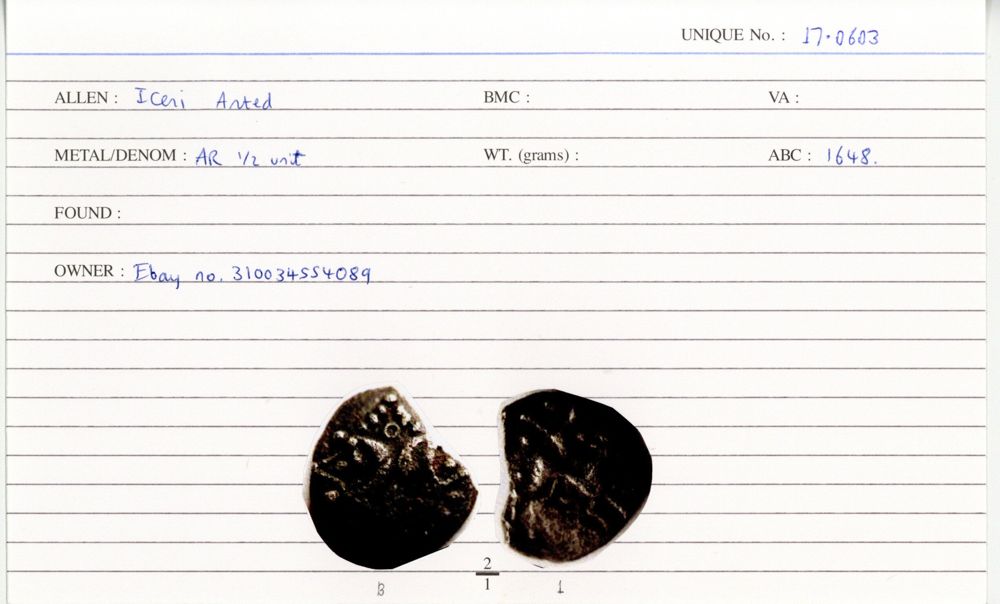 UNIQUE No. : 17.0603
ALLEN : Iceni Anted BMC : VA :
METAL/DENOM : AR 1/2 unit WT. (grams) : ABC : 1648.
FOUND :
OWNER : Ebay no. 310034554089
2
B 1 1